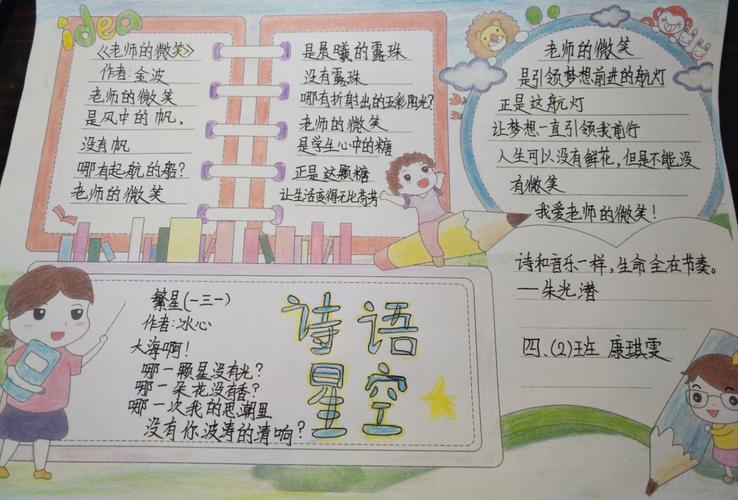 idea
《老师的微笑》
作者:金波
老师的微笑
是风中的帆,
没有帆
哪有起航的船?
老师的微笑
是晨曦的露珠
没有露珠
哪有折射出的五彩阳光?
老师的微笑
是学生心中的糖
正是这颗糖
让生活变得无比芳芳
老师的微笑
是引领梦想前进的航灯
正是这航灯
让梦想一直引领我前行
人生可以没有鲜花,但是不能没
有微笑
我爱老师的微笑!
繁星(一三一)
作者:冰心
大海啊!
哪一颗星没有光?
哪一朵花没有香?
哪一次我的思潮里
没有你波涛的清响?
诗语
星空
诗和音乐一样,生命全在节奏。
—朱光潜
四、(2)班 康琪雯